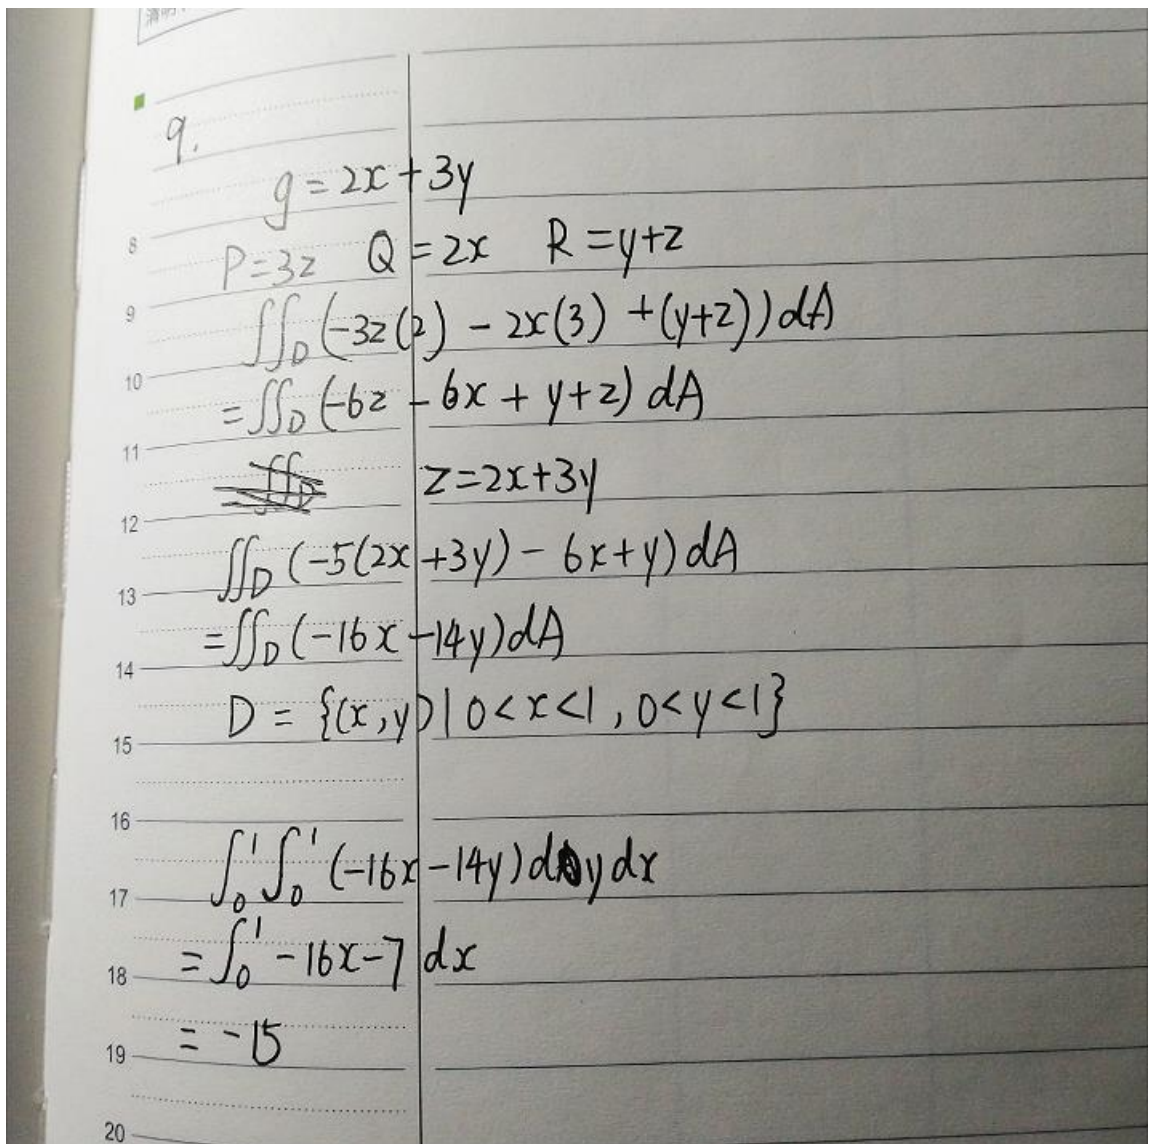 9.
g = 2x + 3y
8
P = 3z Q = 2x R = y+z
9
∬_D (-3z(2) - 2x(3) + (y+z)) dA
10
= ∬_D (-6z - 6x + y + z) dA
11
z = 2x+3y
12
∬_D (-5(2x+3y) - 6x + y) dA
13
= ∬_D (-16x - 14y) dA
14
D = {(x,y) | 0 < x < 1, 0 < y < 1}
15
16
∫_0^1 ∫_0^1 (-16x - 14y) dy dx
17
= ∫_0^1 -16x - 7 dx
18
= -15
19
20